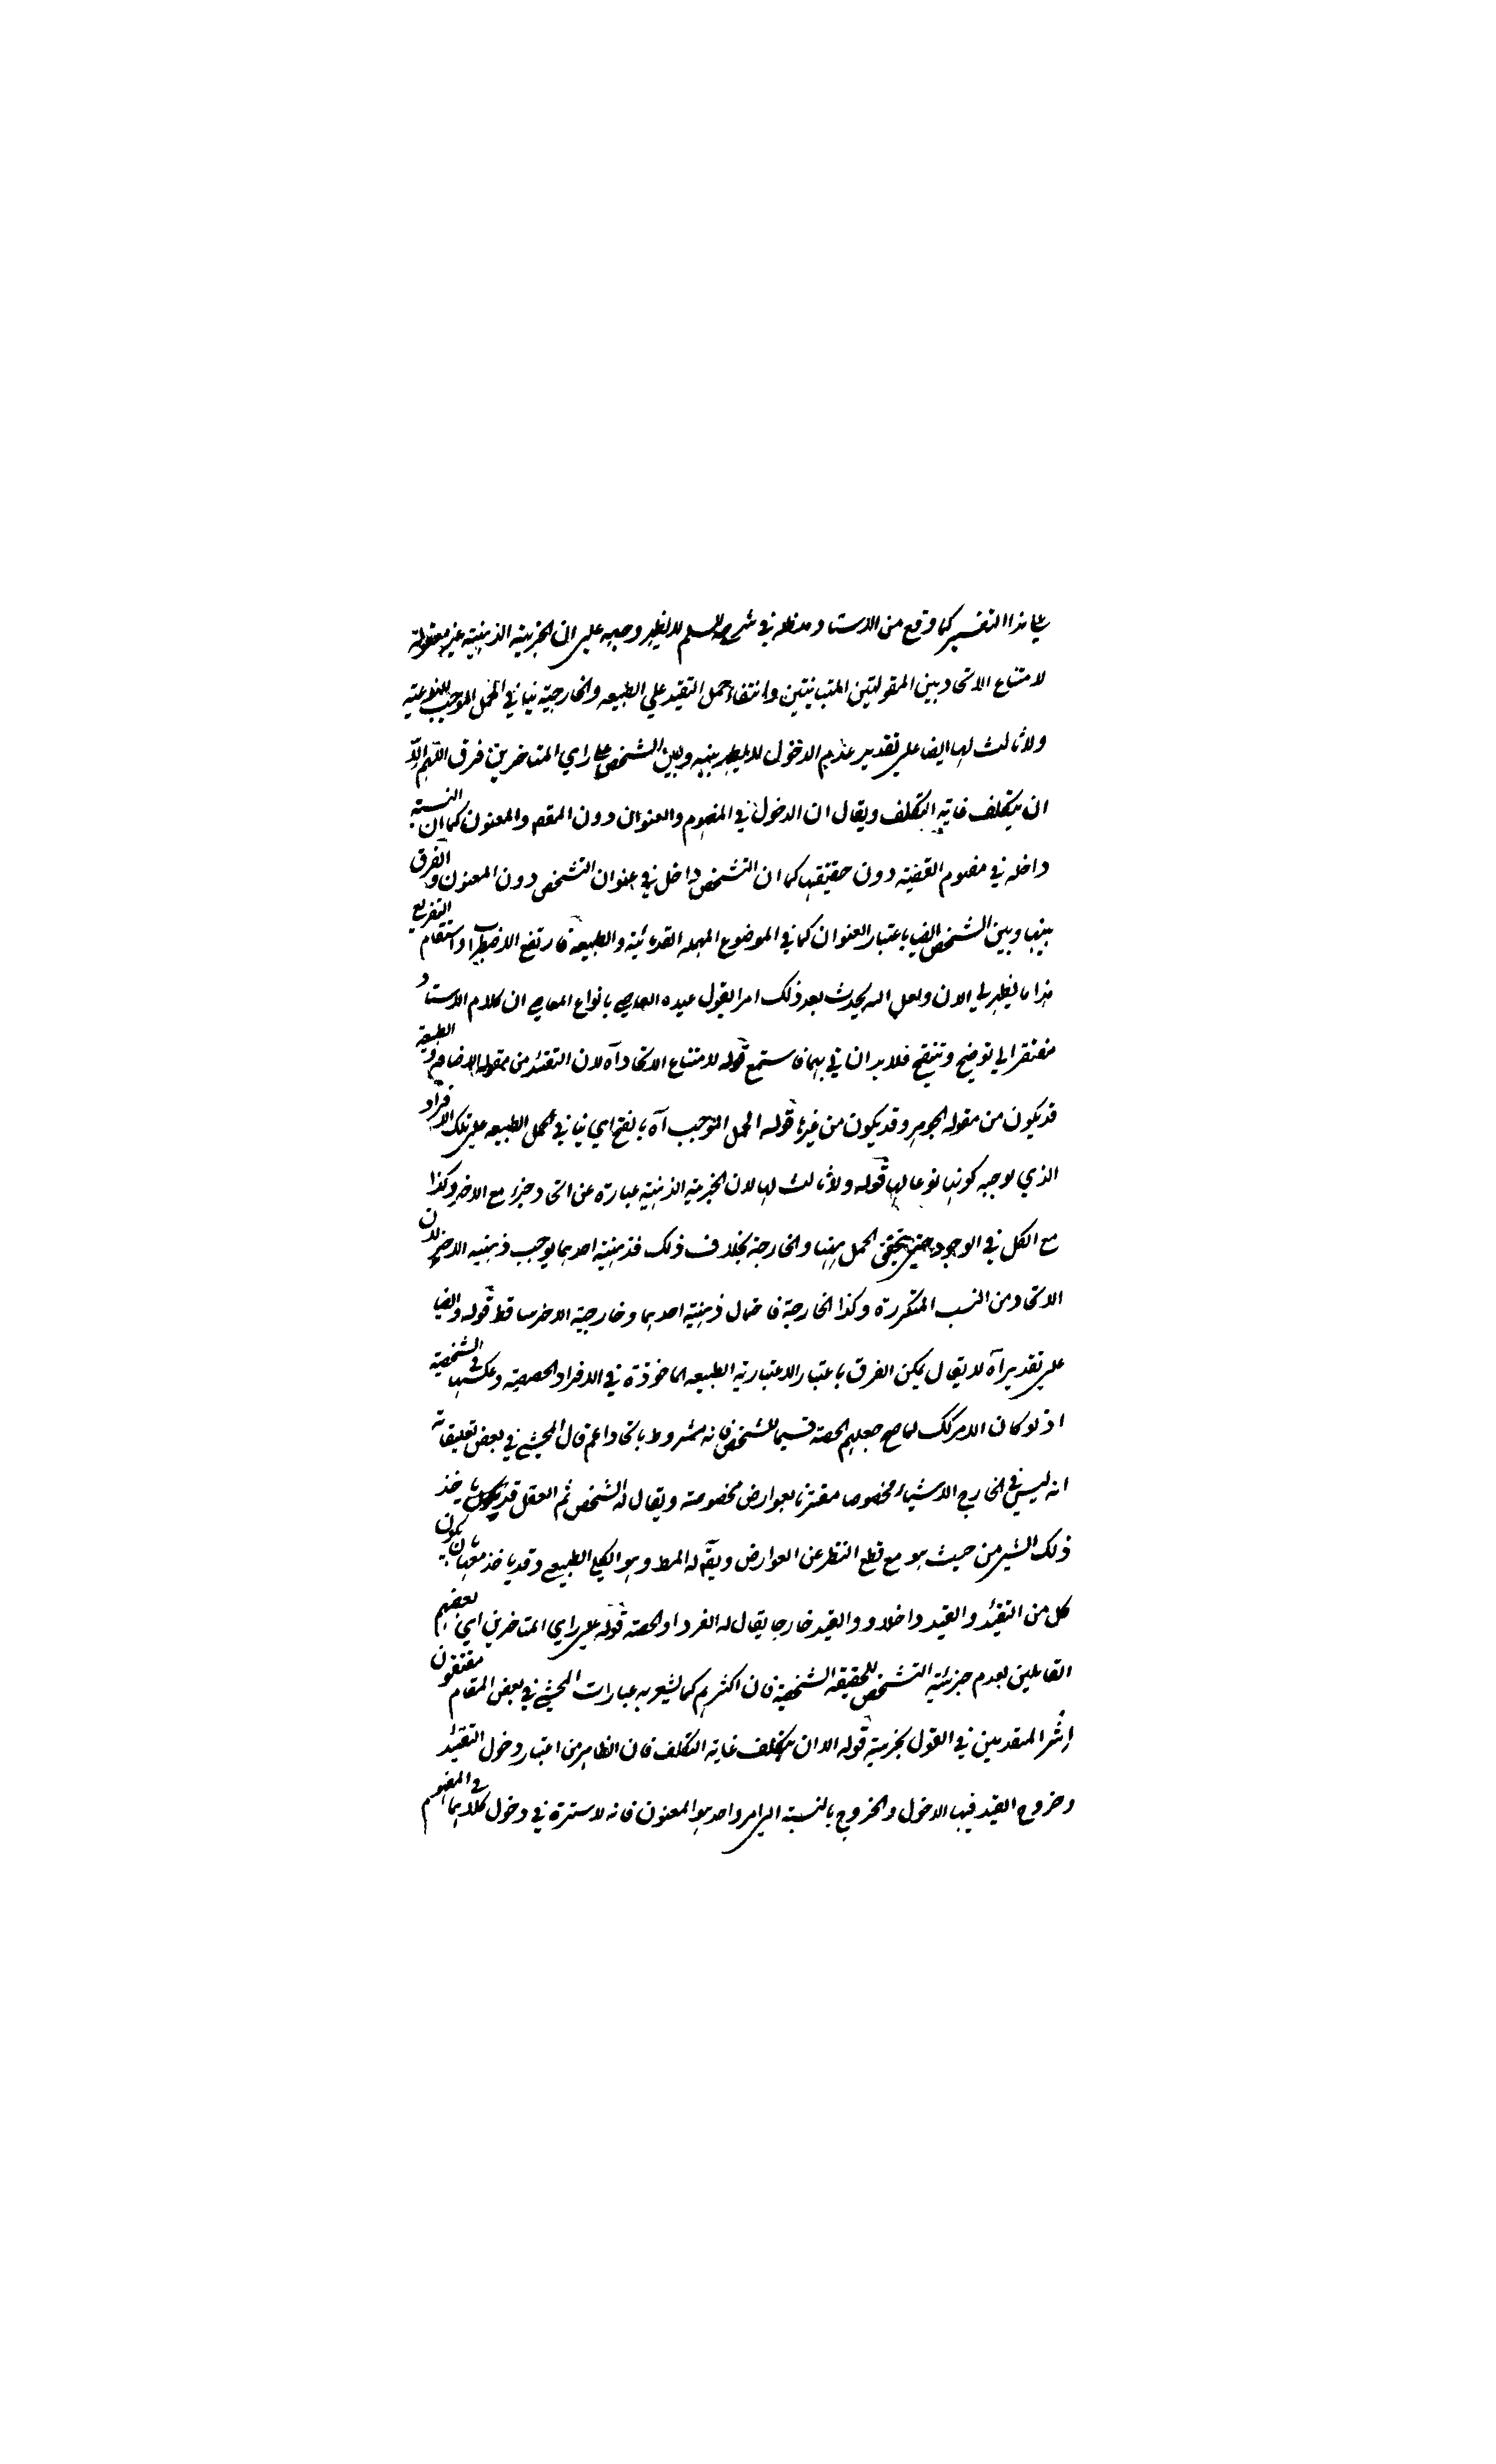 على هذا التفسير كما وقع من الاستاد مدظله في شرحه للسلم لا يظهر وجهه على ان الجزئية الذهنية غير معقولة
لامتناع الاتحاد بين المقولتين المتبانيتين وانتفاء حمل التقيد على الطبيعه والخارجية ينافي الحمل الموجب للنوعية
ولا ثالث لها ايضا على تقدير عدم الدخول لا يظهر بينه وبين الشخص على راي المتاخرين فرق اللهم الا
ان يتكلف غاية التكلف ويقال ان الدخول في المفهوم والعنوان دون المقصود والمعنون كما ان النسبة
داخله في مفهوم القضية دون حقيقتها كما ان التشخص داخل في عنوان الشخص دون المعنون والفرق
بينها وبين الشخص ايضا باعتبار العنوان كما في الموضوع المهمله القدمائية والطبيعة فارتفع الاضطراب واستقام التفريع
هذا ما يظهر لي الان ولعل الله يحدث بعد ذلك امرا يقول عبده العاصي بانواع المعاصي ان كلام الاستاد
مفتقر الى توضيح وتنقيح فلا بد ان فاستمع قوله لامتناع الاتحاد آه لان التقيد من مقوله الاضافة والطبيعة
قد يكون من مقوله الجوهر وقد يكون من غيرها قوله الحمل الموجب آه بالفتح اي ينافي حمل الطبيعه على تلك الافراد
الذي يوجبه كونها نوعا لها قوله ولا ثالث لها لان الجزئية الذهنية عبارة عن اتحاد جزء مع الاخر وكذا
مع الكل في الوجود حتى يتحقق الحمل بينها والخارجية بخلاف ذلك فذهنية احدهما يوجب ذهنية الاخر لان
الاتحاد من النسب المتكررة وكذا الخارجية فاحتمال ذهنية احدهما وخارجية الاخر ساقط قوله وايضا
على تقدير آه لا يقال يمكن الفرق باعتبار الاعتبارية الطبيعه الماخوذة في الافراد الحصصية وعكسها في الشخصية
اذ لو كان الامر كك لما صح جعلهم الحصه قسيما للشخص فانه مشروط باتحاد قال المحشي في بعض تعليقاته
انه ليس في الخارج الا شياء مخصوصا مقترنا بعوارض مخصوصة ويقال له الشخص ثم العقل قد ياخذ
ذلك الشيء من حيث هو مع قطع النظر عن العوارض ويقال له المط وهو الكلي الطبيعي وقد ياخذ مقيدا بان يكون
كل من التقيد والقيد داخلا و والقيد خارجا يقال له الفرد او الحصه قوله على راي المتاخرين اي بعضهم
القائلين بعدم جزئية التشخص للحقيقه الشخصية فان اكثرهم كما يشعر به عبارات المحشي في بعض المقام مقتفون
اثر المتقدمين في القول بجزئية قوله الا ان يتكلف غاية التكلف فان الظاهر من اعتبار دخول التقيد
وخروج القيد فيها الدخول والخروج بالنسبة الى امر واحد هو المعنون فانه لا سترة في دخول كلاهما في المفهوم